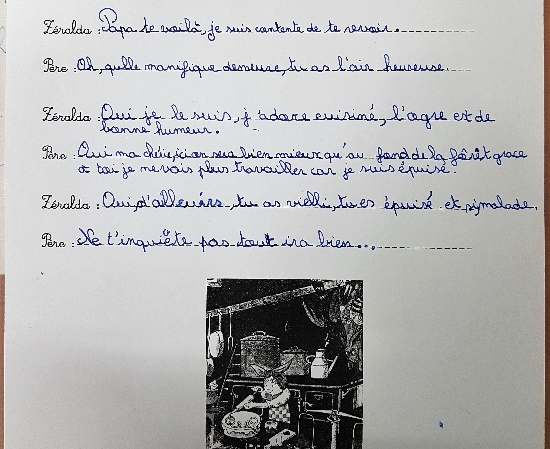 Zéralda : Papa te voilà, je suis contente de te revoir.
Père : Oh, qulle manifique demeure, tu as l'air heureuse.
Zéralda : Oui je le suis, j'adore cuisiné, l'ogre est de
bonne humeur.
Père : Oui ma chérie, ici on sera bien mieux qu'au fond de la forêt grace
a toi je ne vais plus travailler car je suis épuisé.
Zéralda : Oui, d'ailleurs, tu as vielli, tu es épuisé et si malade.
Père : Ne t'inquiète pas tout ira bien...